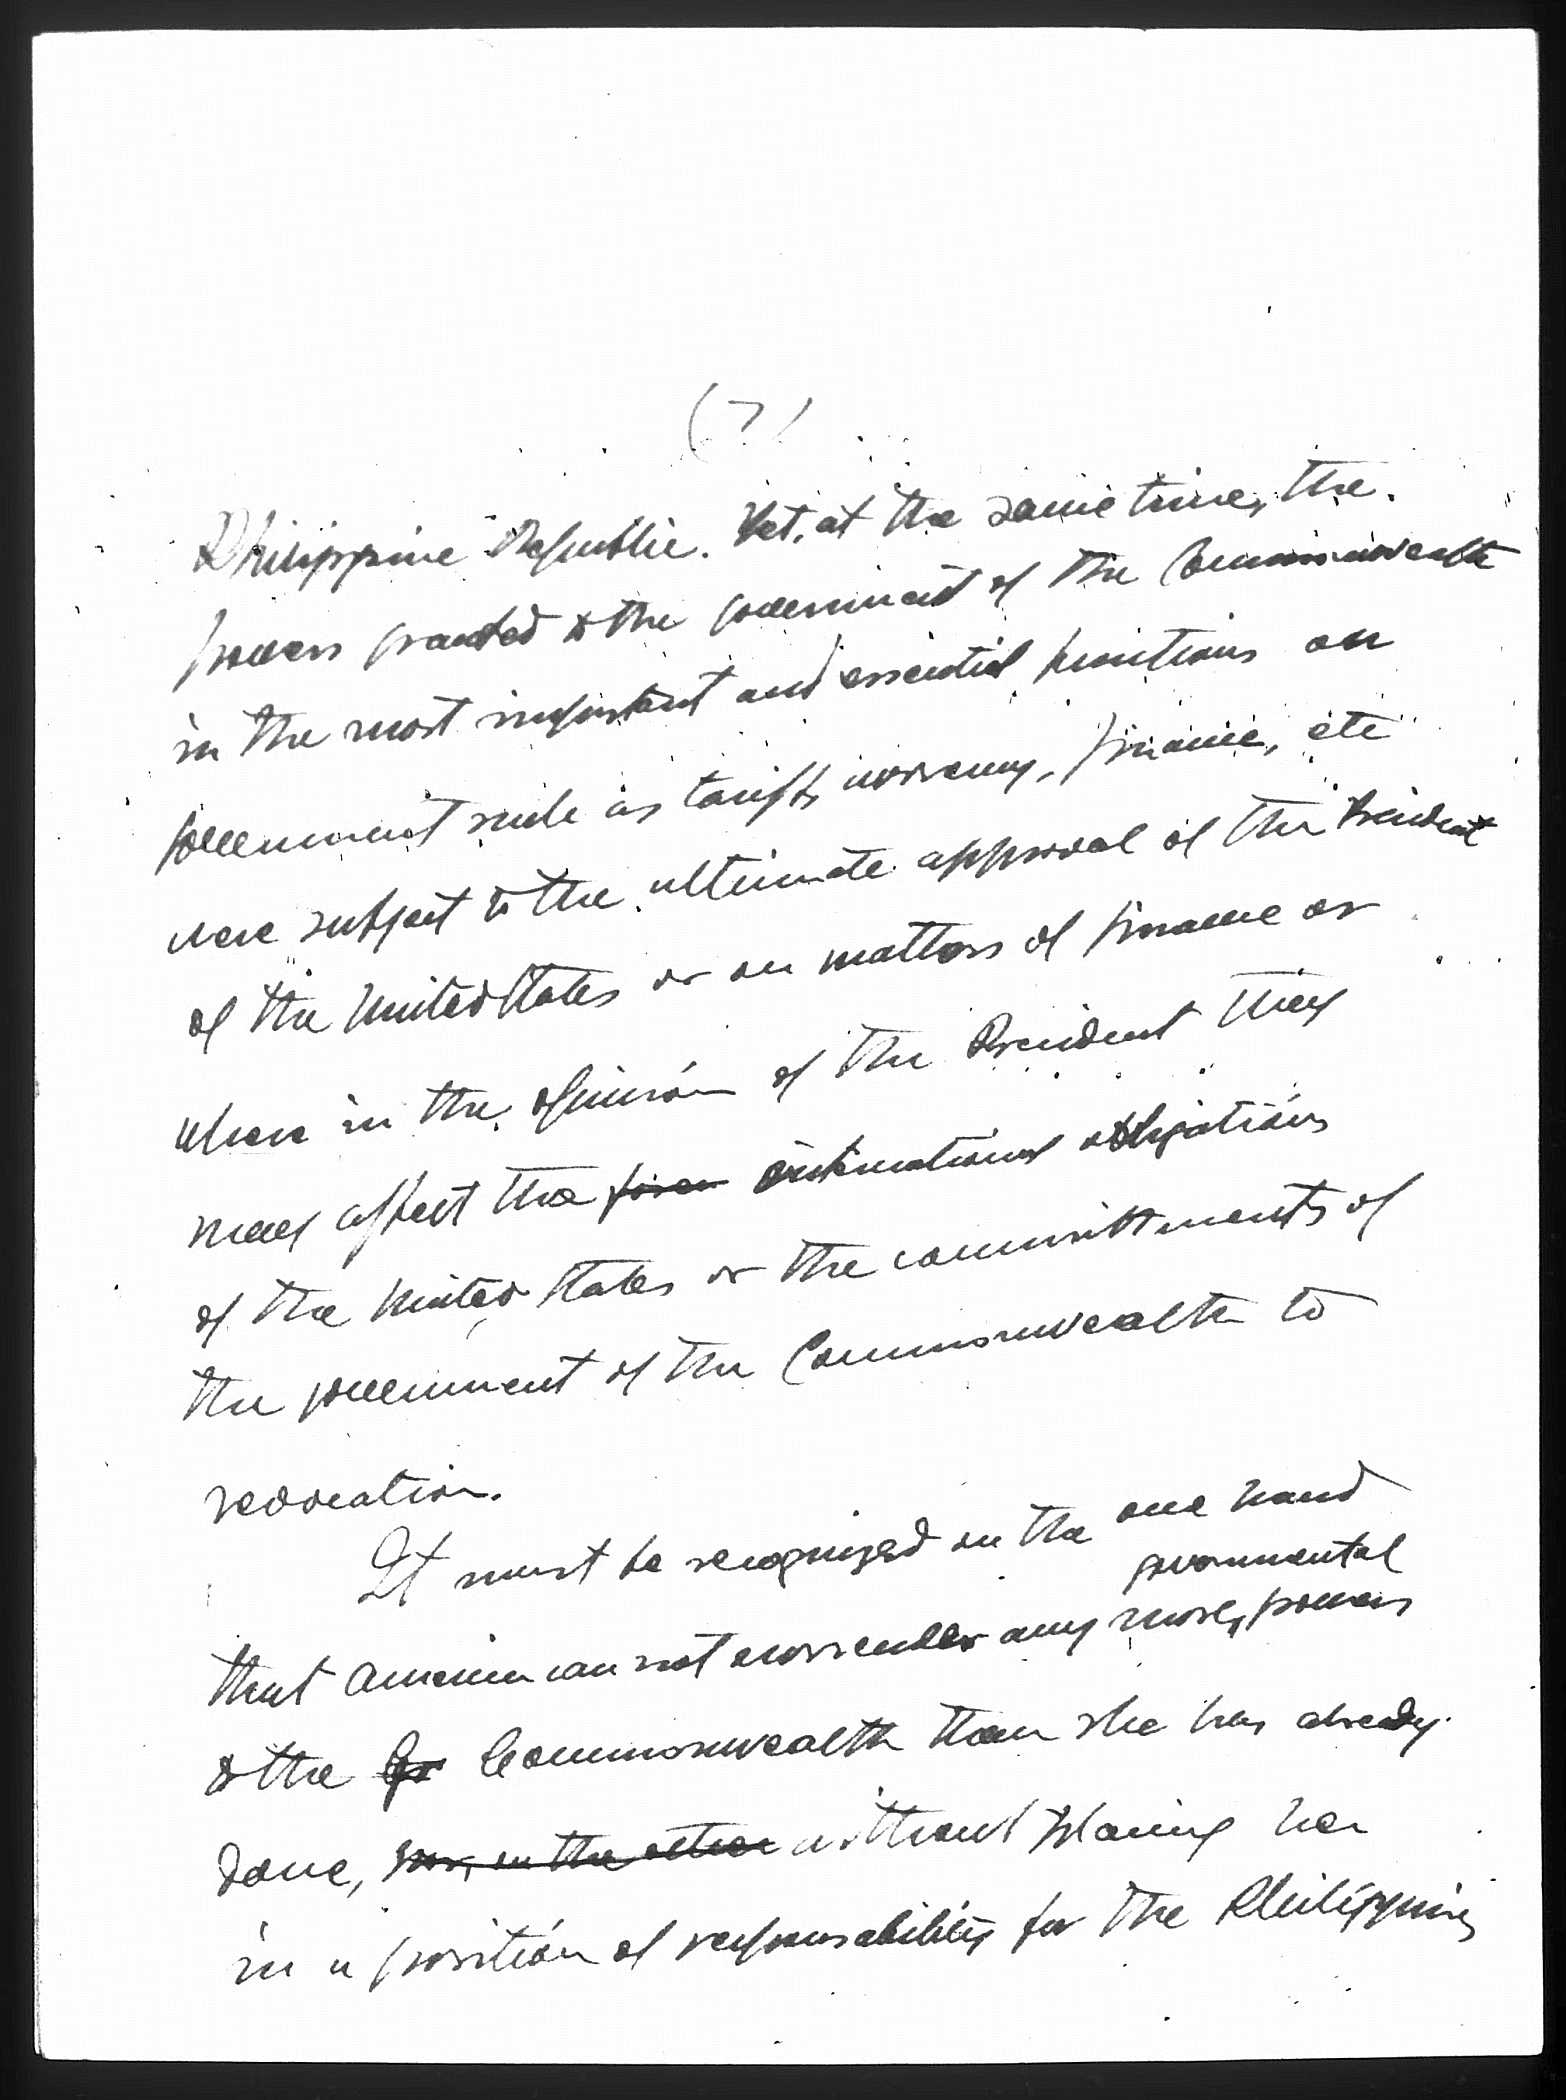 (7)
Philippine Republic. Yet, at the same time, the
powers granted to the government of the Commonwealth
in the most important and essential functions on
government such as tariff, currency, finance, etc
were subject to the ultimate approval of the President
of the United States or on matters of finance or
where in the opinion of the President they
may affect the international obligations
of the United States or the committments of
the government of the Commonwealth to
revocation.
It must be recognized on the one hand
governmental
that America can not surrender any more powers
to the Commonwealth than she has already
done, nor, on the other without placing her
in a position of responsability for the Philippines